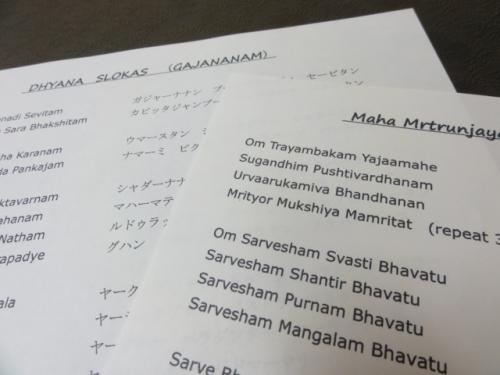 DHYANA SLOKAS (GAJANANAM)
nadi Sevitam ガジャーナナン セービタン
Sara Bhakshitam カピッタジャンブー
ha Karanam ウマースタン
da Pankajam ナマーミ ビク
ktavarnam シャダーナナ
ahanam マハーマテ
Natham ルドゥラッ
rapadye グハン
ala ヤーク
ヤー
ヤー
Maha Mrtrunjaya
Om Trayambakam Yajaamahe
Sugandhim Pushtivardhanam
Urvaarukamiva Bhandhanan
Mrityor Mukshiya Mamritat (repeat 3
Om Sarvesham Svasti Bhavatu
Sarvesham Shantir Bhavatu
Sarvesham Purnam Bhavatu
Sarvesham Mangalam Bhavatu
Sarve